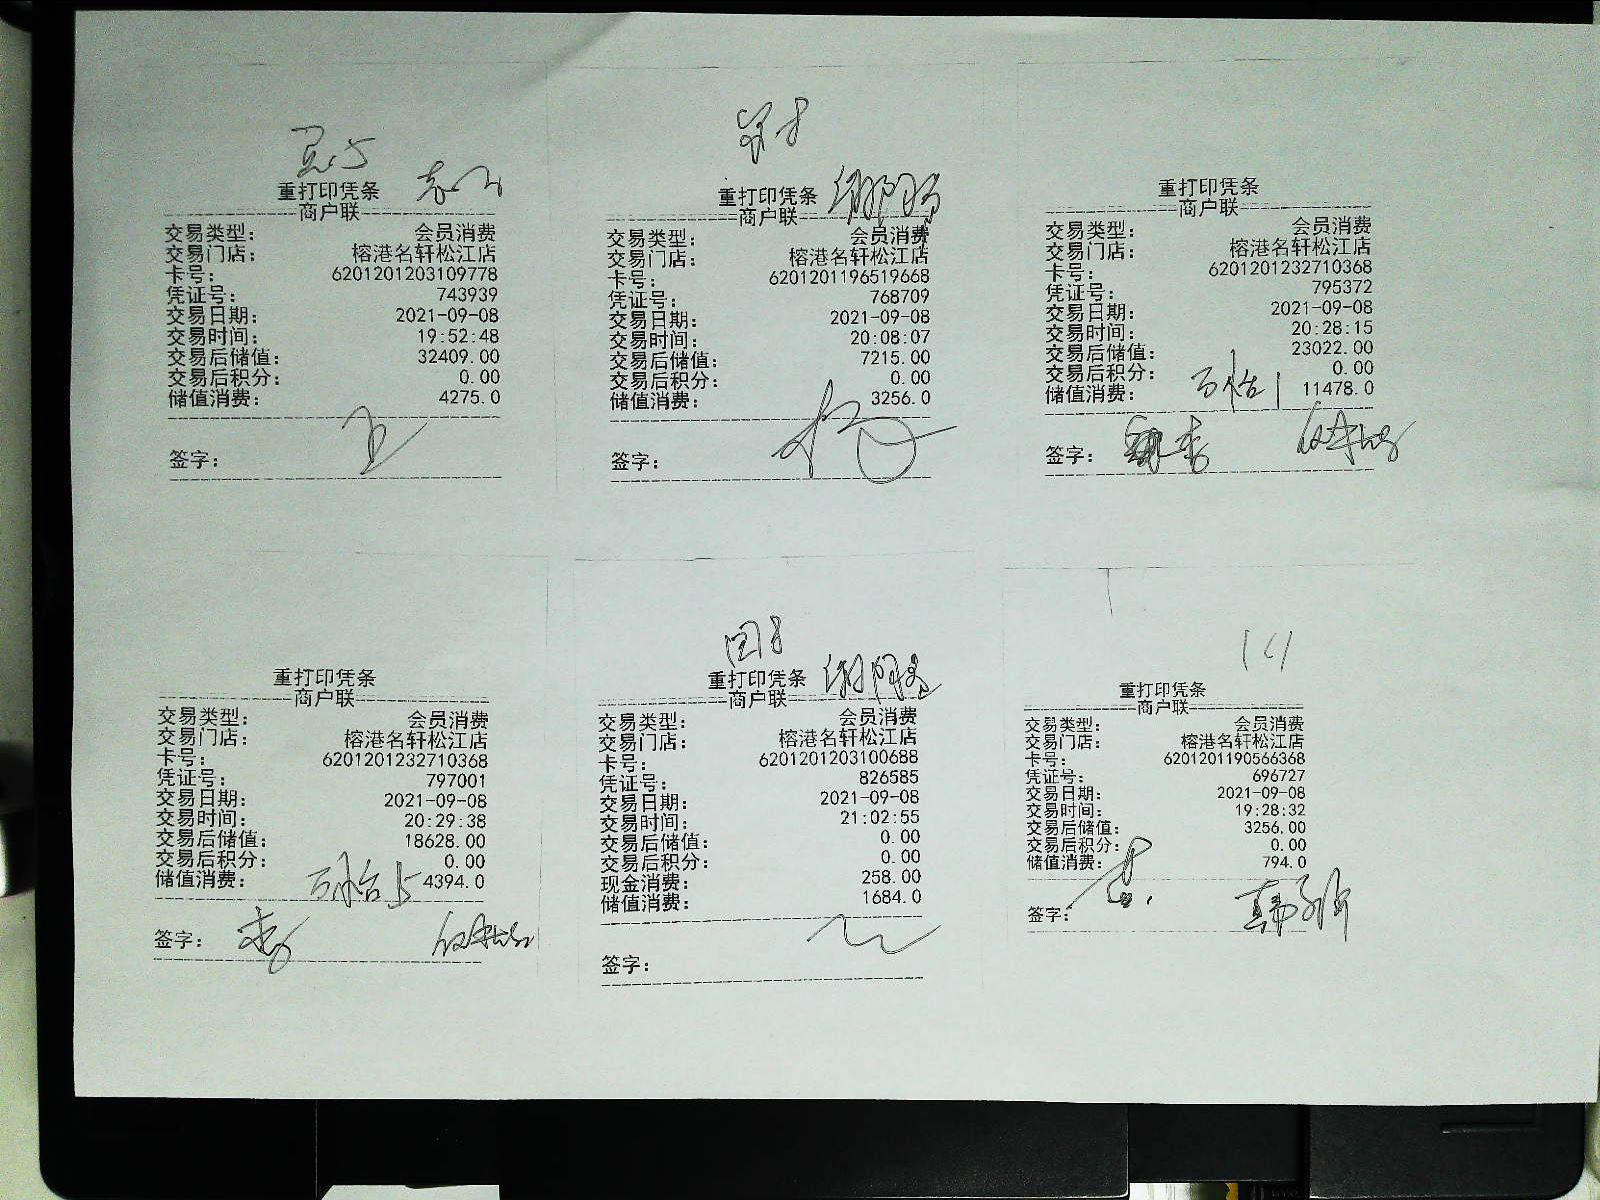 重打印凭条
商户联
交易类型: 会员消费
交易门店: 榕港名轩松江店
卡号: 6201201203109778
凭证号: 743939
交易日期: 2021-09-08
交易时间: 19:52:48
交易后储值: 32409.00
交易后积分: 0.00
储值消费: 4275.0
签字:
重打印凭条
商户联
交易类型: 会员消费
交易门店: 榕港名轩松江店
卡号: 6201201196519668
凭证号: 768709
交易日期: 2021-09-08
交易时间: 20:08:07
交易后储值: 7215.00
交易后积分: 0.00
储值消费: 3256.0
签字:
重打印凭条
商户联
交易类型: 会员消费
交易门店: 榕港名轩松江店
卡号: 6201201232710368
凭证号: 795372
交易日期: 2021-09-08
交易时间: 20:28:15
交易后储值: 23022.00
交易后积分: 0.00
储值消费: 11478.0
签字:
重打印凭条
商户联
交易类型: 会员消费
交易门店: 榕港名轩松江店
卡号: 6201201232710368
凭证号: 797001
交易日期: 2021-09-08
交易时间: 20:29:38
交易后储值: 18628.00
交易后积分: 0.00
储值消费: 4394.0
签字:
重打印凭条
商户联
交易类型: 会员消费
交易门店: 榕港名轩松江店
卡号: 6201201203100688
凭证号: 826585
交易日期: 2021-09-08
交易时间: 21:02:55
交易后储值: 0.00
交易后积分: 0.00
现金消费: 258.00
储值消费: 1684.0
签字:
重打印凭条
商户联
交易类型: 会员消费
交易门店: 榕港名轩松江店
卡号: 6201201190566368
凭证号: 696727
交易日期: 2021-09-08
交易时间: 19:28:32
交易后储值: 3256.00
交易后积分: 0.00
储值消费: 794.0
签字: